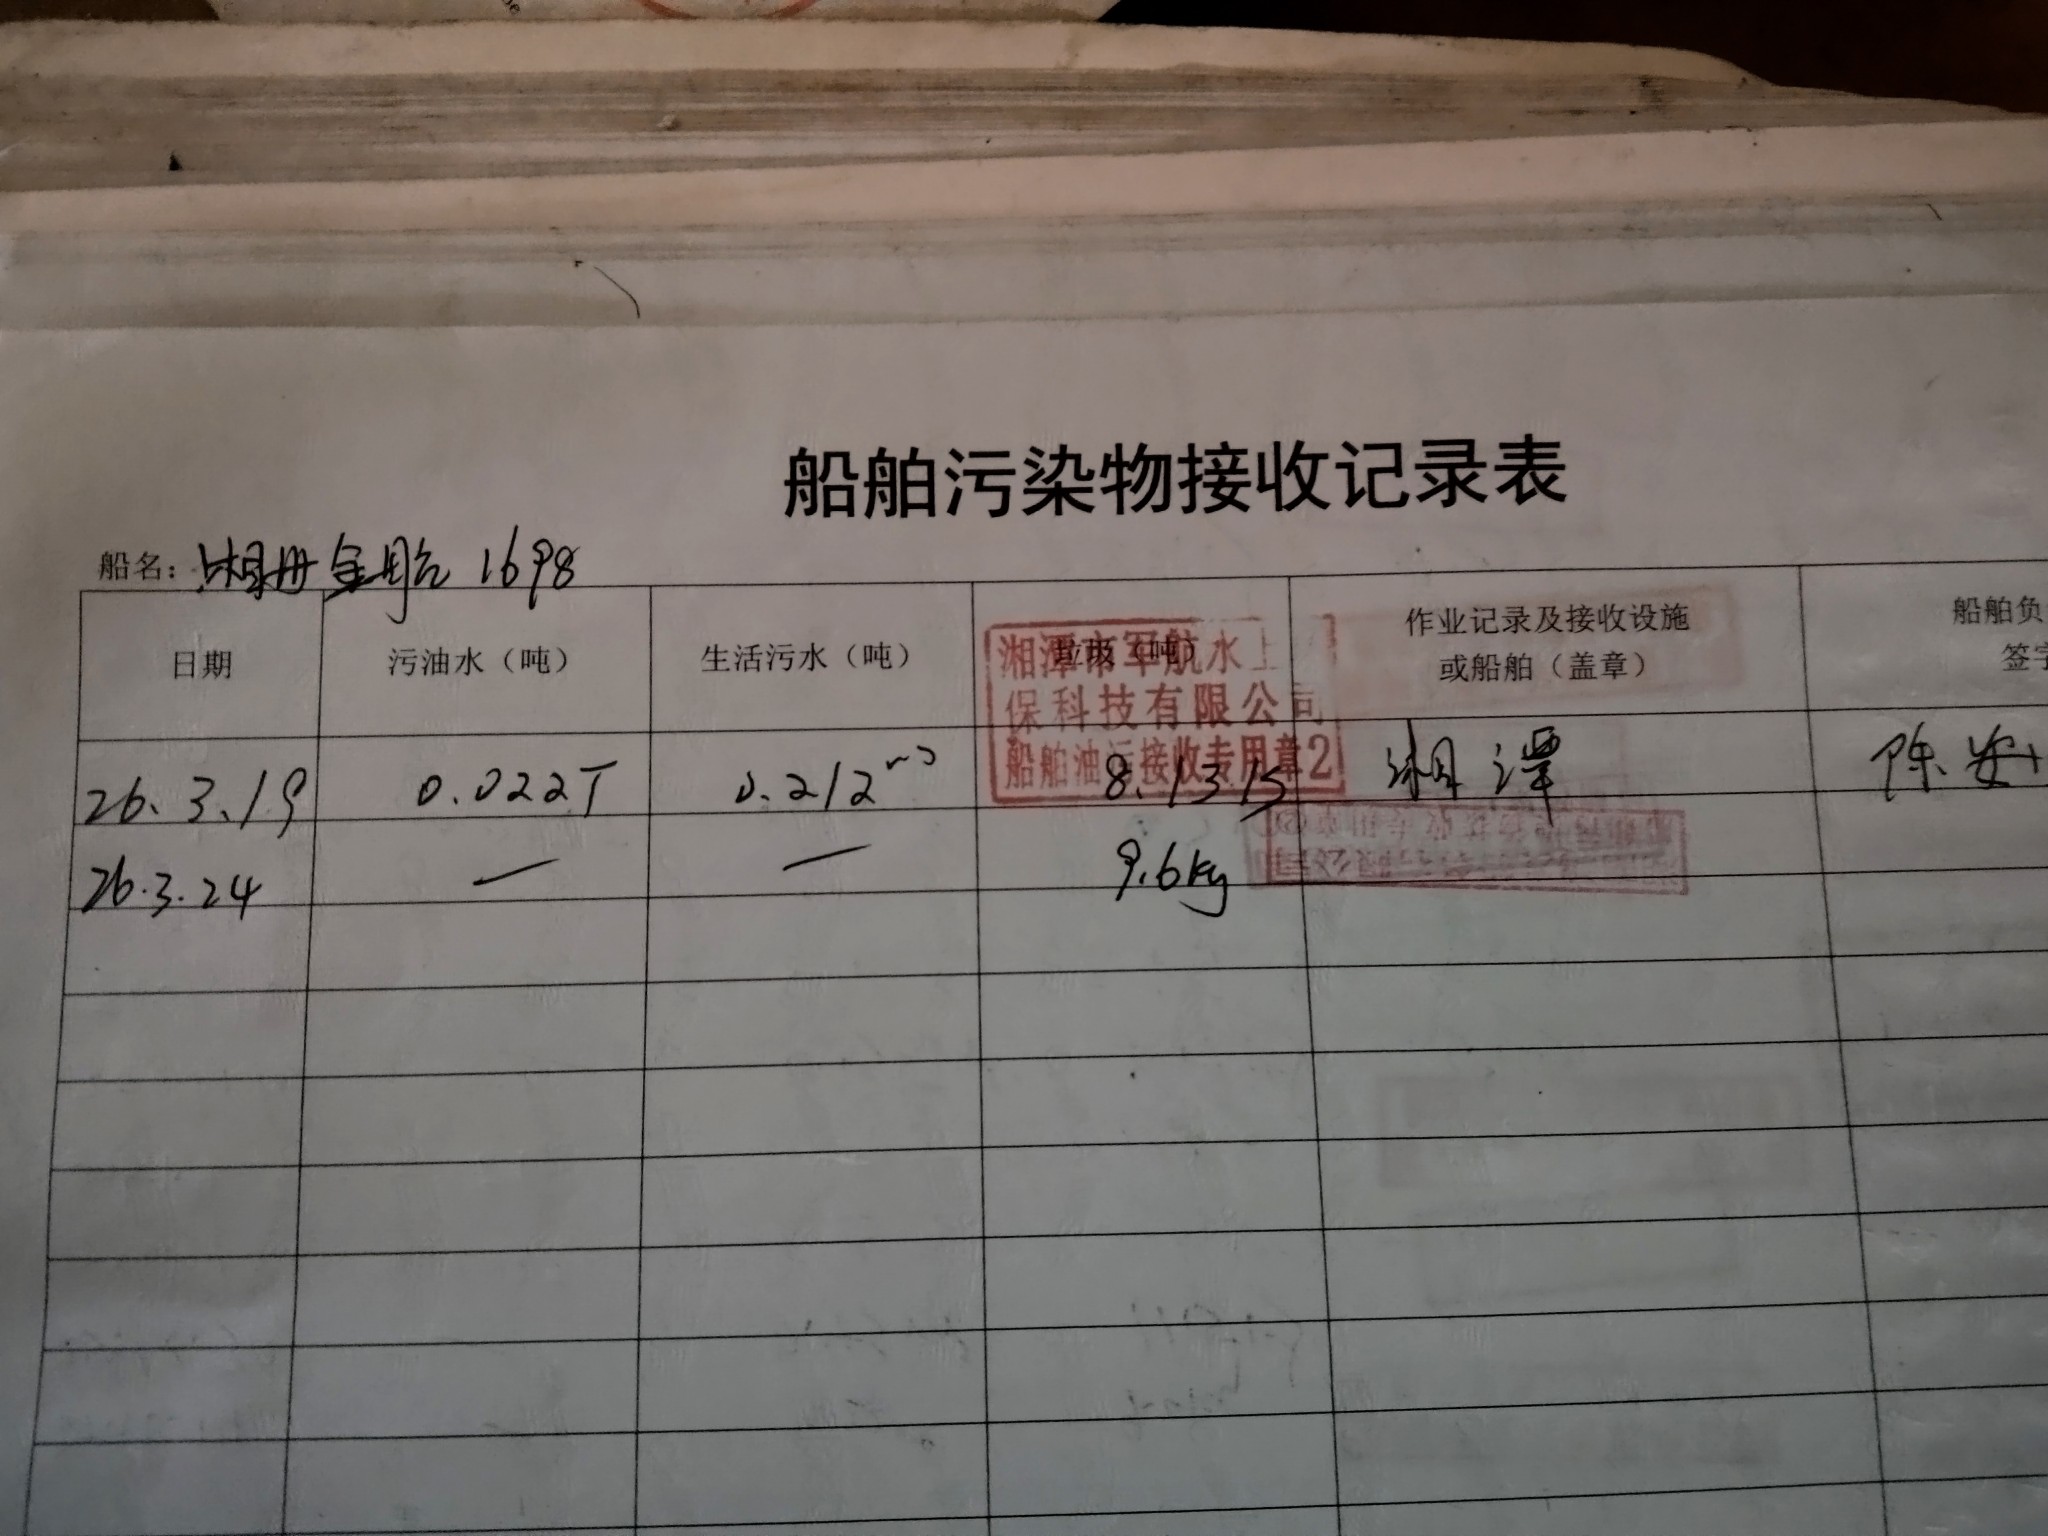 船舶污染物接收记录表
船名: 湘册金船 1698
日期 污油水（吨） 生活污水（吨） 垃圾（吨） 作业记录及接收设施或船舶（盖章） 船舶负 签字
湘潭市军航水上
保科技有限公司
船舶油污接收专用章2
26.3.19 0.022T 0.212m³ 8. 湘潭 陈
26.3.24 — — 9.6kg